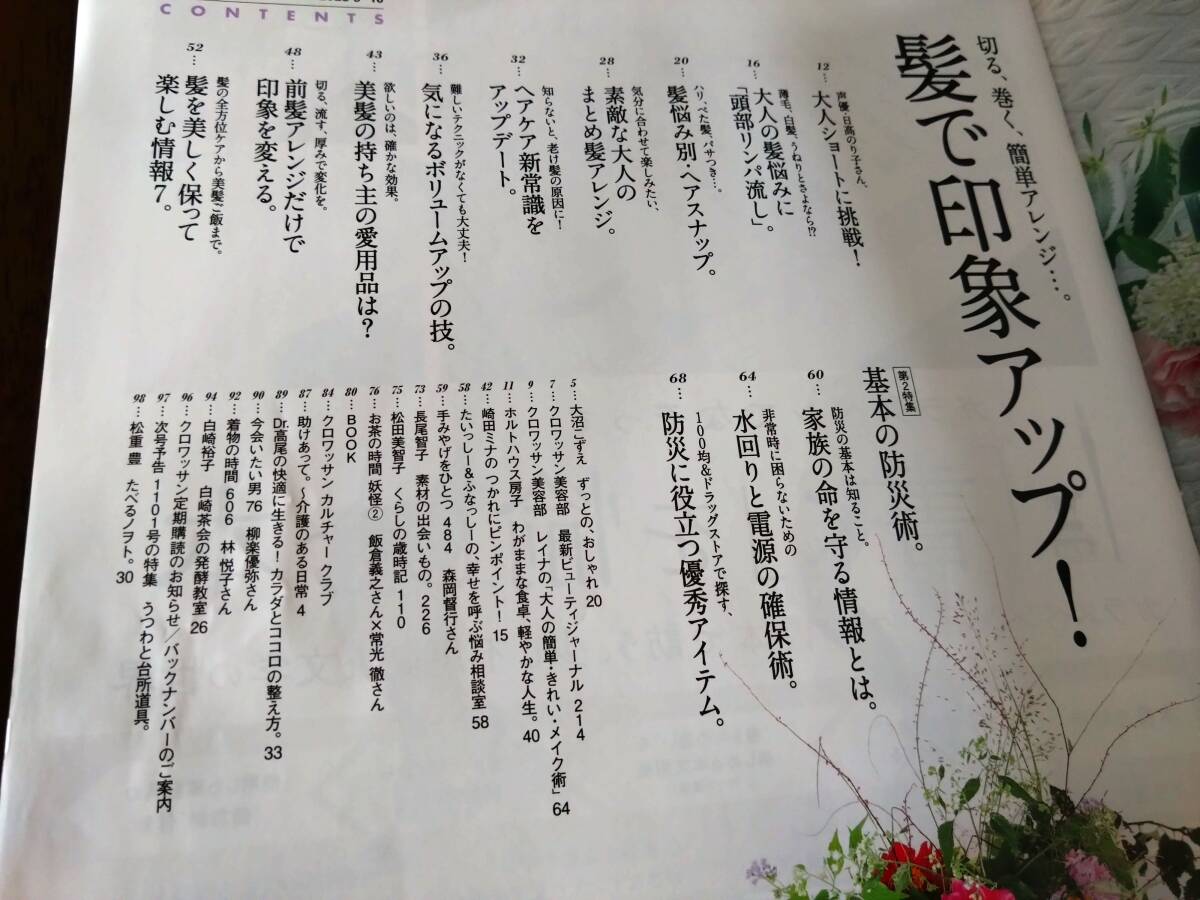 CONTENTS
切る、巻く、簡単アレンジ…。
髪で印象アップ！
声優・日髙のり子さん、
12… 大人ショートに挑戦！
薄毛、白髪、うねりとさよなら!?
16… 大人の髪悩みに
「頭部リンパ流し」。
ハリ、ぺた髪、パサつき…。
20… 髪悩み別・ヘアスナップ。
気分に合わせて楽しみたい、
28… 素敵な大人の
まとめ髪アレンジ。
知らないと、老け髪の原因に！
32… ヘアケア新常識を
アップデート。
難しいテクニックがなくても大丈夫！
36… 気になるボリュームアップの技。
欲しいのは、確かな効果。
43… 美髪の持ち主の愛用品は？
切る、流す、厚みで変化を。
48… 前髪アレンジだけで
印象を変える。
髪の全方位ケアから美髪ご飯まで。
52… 髪を美しく保って
楽しむ情報7。
第2特集
基本の防災術。
防災の基本は知ること。
60… 家族の命を守る情報とは。
非常時に困らないための
64… 水回りと電源の確保術。
100均&ドラッグストアで探す、
68… 防災に役立つ優秀アイテム。
5… 大沼こずえ ずっとの、おしゃれ 20
7… クロワッサン美容部 最新ビューティジャーナル 214
9… クロワッサン美容部 レイナの「大人の簡単・きれい・メイク術」 64
11… ホルトハウス房子 わがままな食卓、軽やかな人生。 40
42… 崎田ミナの つかれにピンポイント！ 15
58… たいっしー&ふなっしーの、幸せを呼ぶ悩み相談室 58
59… 手みやげをひとつ 484 森岡督行さん
73… 長尾智子 素材の出会いもの。 226
75… 松田美智子 くらしの歳時記 110
76… お茶の時間 妖怪② 飯倉義之さん×常光 徹さん
80… BOOK
84… クロワッサン カルチャー クラブ
87… 助けあって。〜介護のある日常 4
89… Dr.高尾の快適に生きる！ カラダとココロの整え方。 33
90… 今会いたい男 76 柳楽優弥さん
92… 着物の時間 606 林 悦子さん
94… 白崎裕子 白崎茶会の発酵教室 26
96… クロワッサン定期購読のお知らせ／バックナンバーのご案内
97… 次号予告 1101号の特集 うつわと台所道具。
98… 松重 豊 たべるノヲト。 30